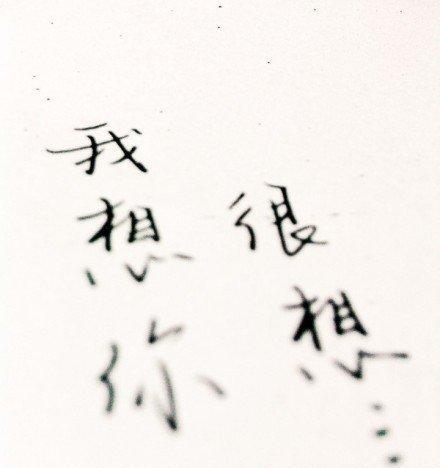 我想你
很想...